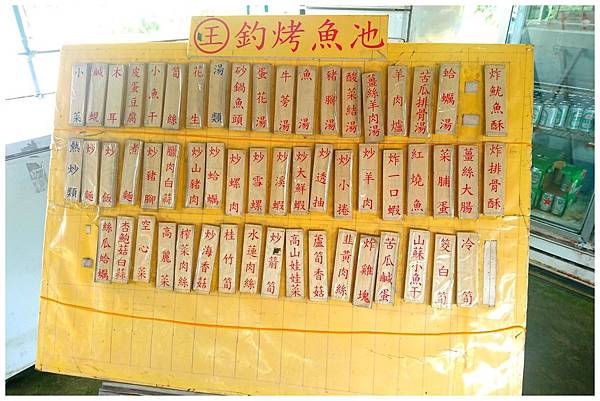 王 釣烤魚池
小菜
鹹蜆
木耳
皮蛋豆腐
小魚干
筍絲
花生
湯類
砂鍋魚頭
蛋花湯
牛蒡湯
魚湯
豬腳湯
酸菜結湯
薑絲羊肉湯
羊肉爐
苦瓜排骨湯
蛤蠣湯
炸魷魚酥
熱炒類
炒麵
炒飯
煮麵
炒豬腳
臘肉白蒜
炒山豬肉
炒蛤蠣
炒螺肉
炒雪螺
炒溪蝦
炒大鮮蝦
炒透抽
炒小捲
炒羊肉
炸一口蝦
紅燒魚
菜脯蛋
薑絲大腸
炸排骨酥
絲瓜蛤蠣
杏鮑菇白蒜
空心菜
高麗菜
榨菜肉絲
炒海香菇
桂竹筍
水蓮肉絲
炒箭筍
高山娃娃菜
蘆筍香菇
韭黃肉絲
炸雞塊
苦瓜鹹蛋
山蘇小魚干
筊白筍
冷筍